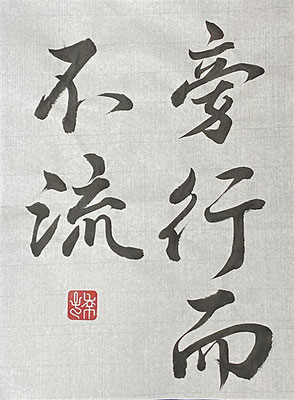 旁行而
不流